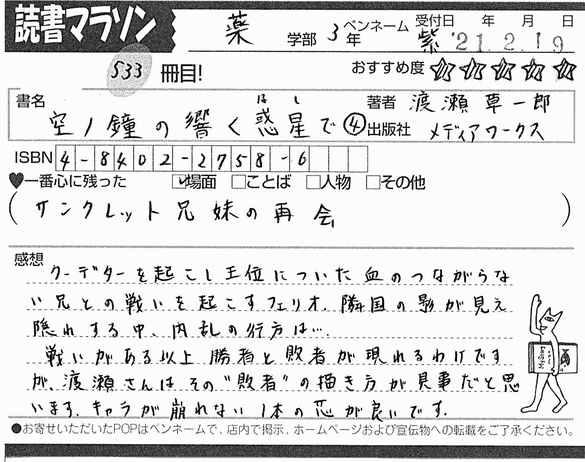 読書マラソン
薬 学部 3年 ペンネーム 紫 受付日 年 月 日 '21.2.19
533 冊目! おすすめ度 ☆☆☆☆☆
書名 空ノ鐘の響く惑星で④ ほし
著者 渡瀬草一郎
出版社 メディアワークス
ISBN 4-8402-2758-6
♥一番心に残った ☑場面 □ことば □人物 □その他
(サンクレット兄妹の再会)
感想
クーデターを起こし王位についた血のつながらな
い兄との戦いを起こすフェリオ。隣国の影が見え
隠れする中、内乱の行方は…。
戦いがある以上勝者と敗者が現れるわけです
が、渡瀬さんはその"敗者"の描き方が見事だと思
います。キャラが崩れない1本の芯が良いです。
●お寄せいただいたPOPはペンネームで、店内で掲示、ホームページおよび宣伝物への転載をご了承ください。